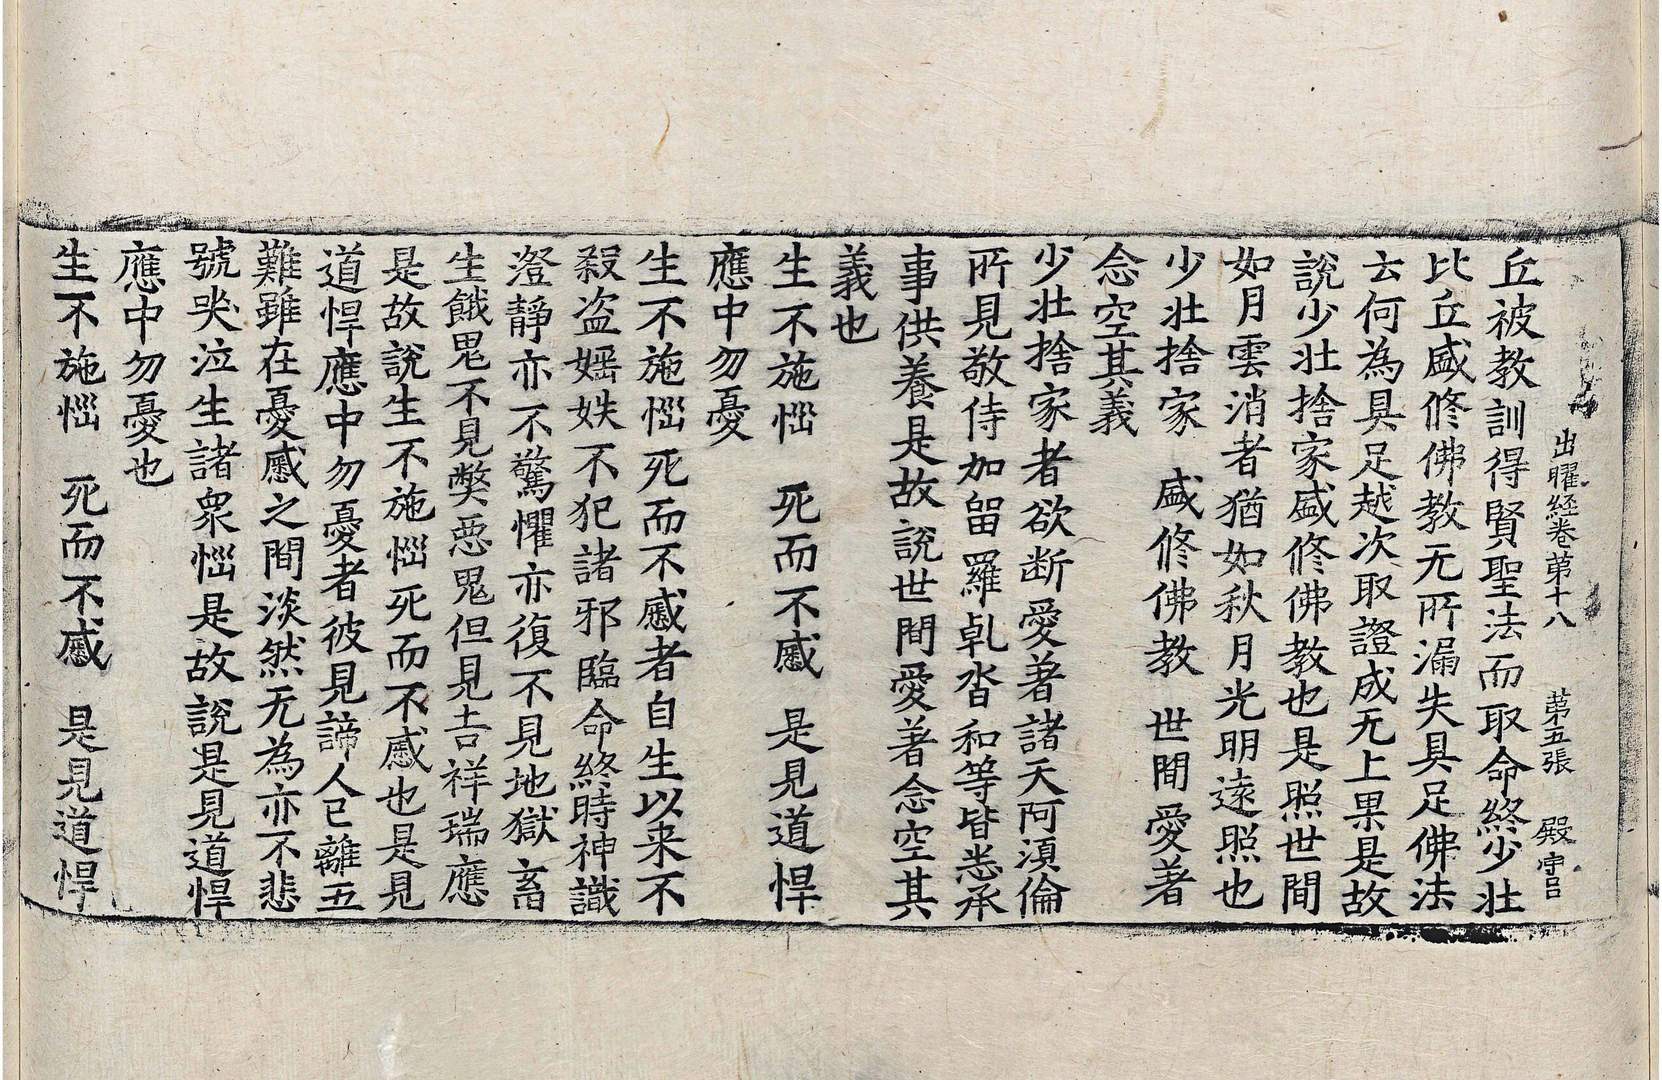 出曜経卷第十八　第五張　殿字号
丘被教訓得賢聖法而取命終少壯
比丘盛修佛教无所漏失具足佛法
云何為具足越次取證成无上果是故
說少壯捨家盛修佛教也是照世間
如月雲消者猶如秋月光明遠照也
少壯捨家　盛修佛教　世間愛著
念空其義
少壯捨家者欲断愛著諸天阿湏倫
所見敬侍加留羅乹沓和等皆悉承
事供養是故說世間愛著念空其
義也
生不施惱　死而不慼　是見道悍
應中勿憂
生不施惱死而不慼者自生以来不
殺盗婬妷不犯諸邪臨命終時神識
澄靜亦不驚懼亦復不見地獄畜
生餓鬼不見獘惡鬼但見吉祥瑞應
是故說生不施惱死而不慼也是見
道悍應中勿憂者彼見諦人已離五
難雖在憂慼之間淡然无為亦不悲
號哭泣生諸衆惱是故說是見道悍
應中勿憂也
生不施惱　死而不慼　是見道悍